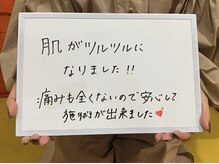 肌がツルツルに
なりました!!
痛みも全くないので安心して
施術が出来ました